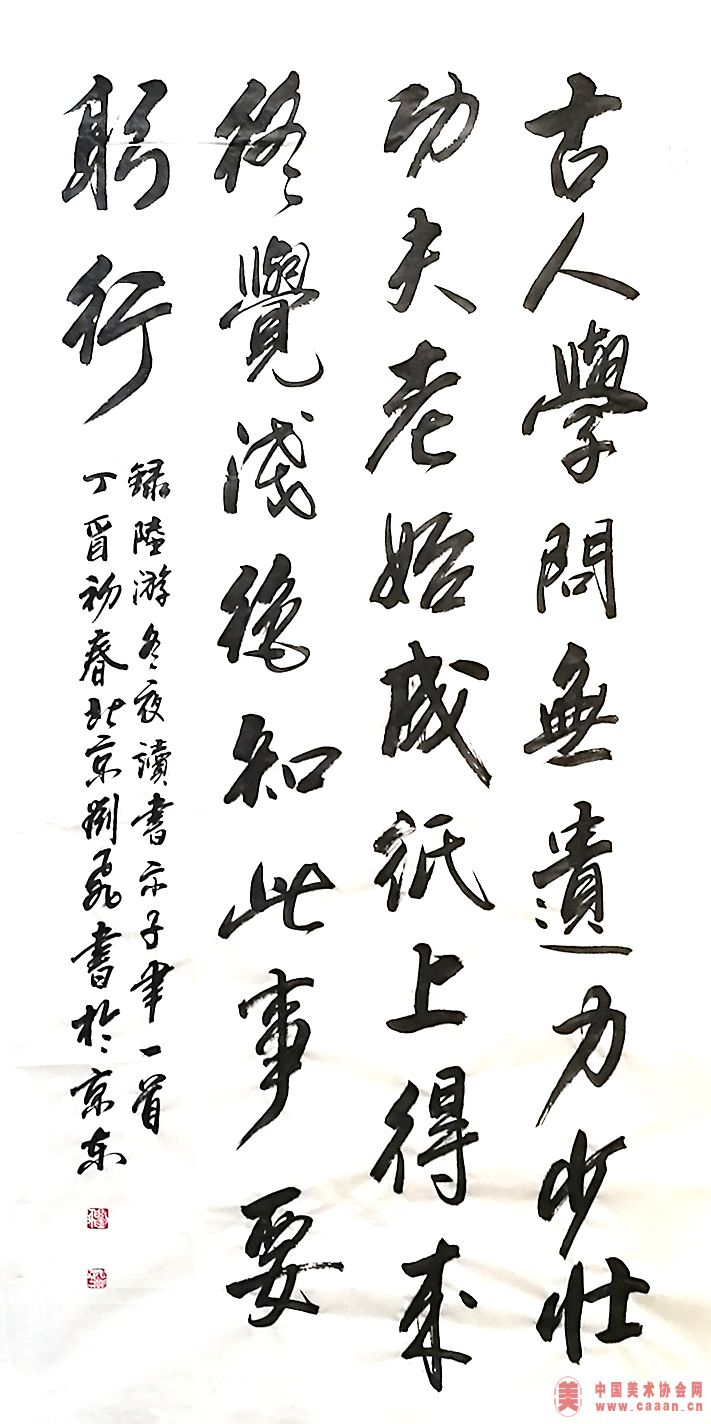 古人學問無遺力少壯
功夫老始成紙上得来
終覺淺絶知此事要
躬行
録陸游冬夜讀書示子聿一首
丁酉初春北京劉飛書於京东
美
中国美术协会网
www.caaan.cn